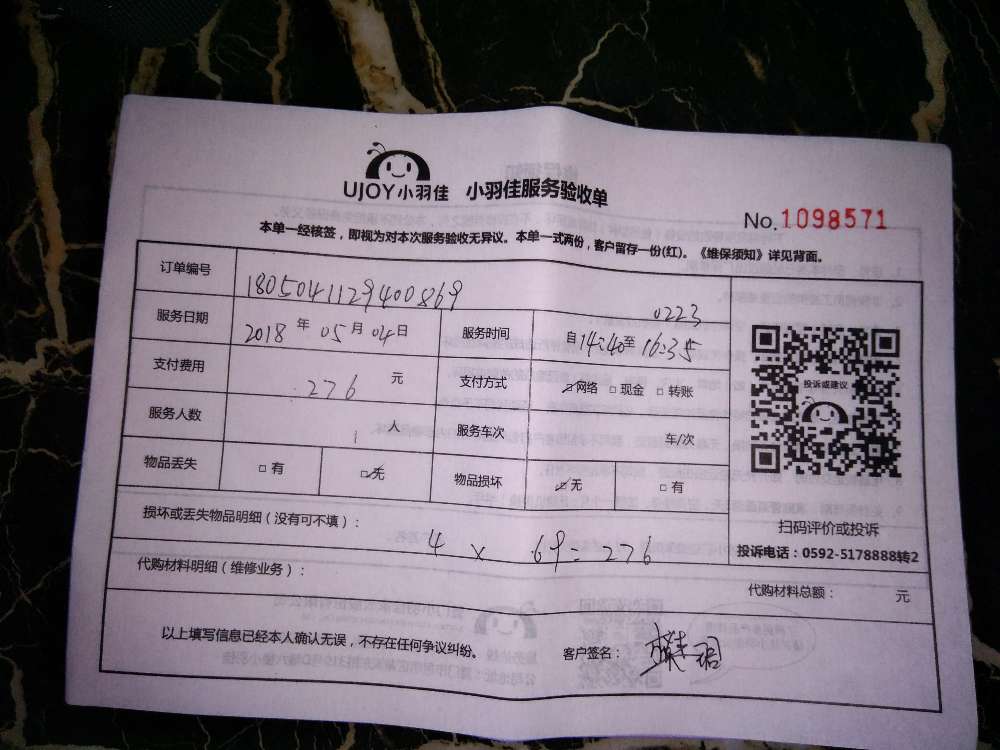 UJOY小羽佳 小羽佳服务验收单
No.1098571
本单一经核签，即视为对本次服务验收无异议。本单一式两份，客户留存一份(红)。《维保须知》详见背面。
订单编号 1805041129400869
0223
服务日期 2018 年 05 月 04 日 服务时间 自 14:40 至 16:35
支付费用 276 元 支付方式 ☑网络 □现金 □转账
服务人数 1 人 服务车次 车/次
物品丢失 □有 ☑无 物品损坏 ☑无 □有
投诉或建议
扫码评价或投诉
投诉电话：0592-5178888转2
损坏或丢失物品明细（没有可不填）：
4 x 69 = 276
代购材料明细（维修业务）：
代购材料总额： 元
以上填写信息已经本人确认无误，不存在任何争议纠纷。 客户签名：